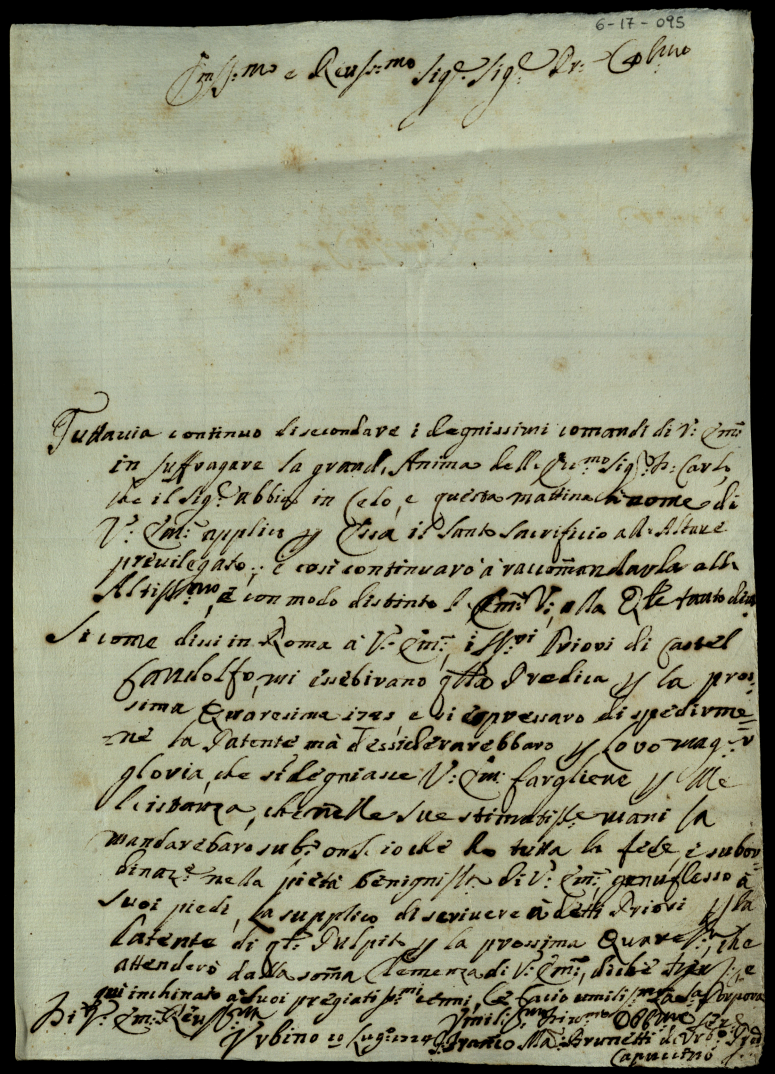 6-17-095
Em.mo e Reu.mo Sig.e Sig.e Pr.
Tuttauia continuo di secondare i degnissimi comandi di V. Em.
in suffragare la grand' Anima dell' Sig. Pr. Carl.
che il Sig.e abbia in Celo, e questa mattina à nome di
V. Em. applico p Essa il Santo Sacrificio all' Altare
preuilegato, e così continuarò à raccomandarla all'
Altiss.mo, e con modo distinto l' Em. V., alla tanto
Si come dissi in Roma à V. Em., i SS.ri Priori di Castel
Gandolfo, mi essebirano Predica p la pros=
sima Quaresima e si espressaro di spedirme=
ne la Patente mà dessiderarebbaro p loro mag.r
gloria, che si degniasse V. Em. fargliene p me
l'istanza, che nelle sue stimatiss.e mani la
mandarebaro sub.o onde io che ho tutta la fede, e subor=
dinaz.e nella pietà benigniss.a di V. Em. genuflesso à
suoi piedi, la supplico di scriuere à detti Priori p la
Patente di q.to Pulpito p la prossima Quares.a, che
attenderò dalla somma Clemenza di V. Em.,
qui inchinato a' suoi pregiatiss.mi cenni, le bacio umiliss.te la Sa. Porpora
Di V. Em. Reu.ma
Vmiliss.mo Obb.mo Ser.e
Vrbino 20 Lug.o F. Franco Ma. Brunetti da Vrb.o Pred.
Capuccino